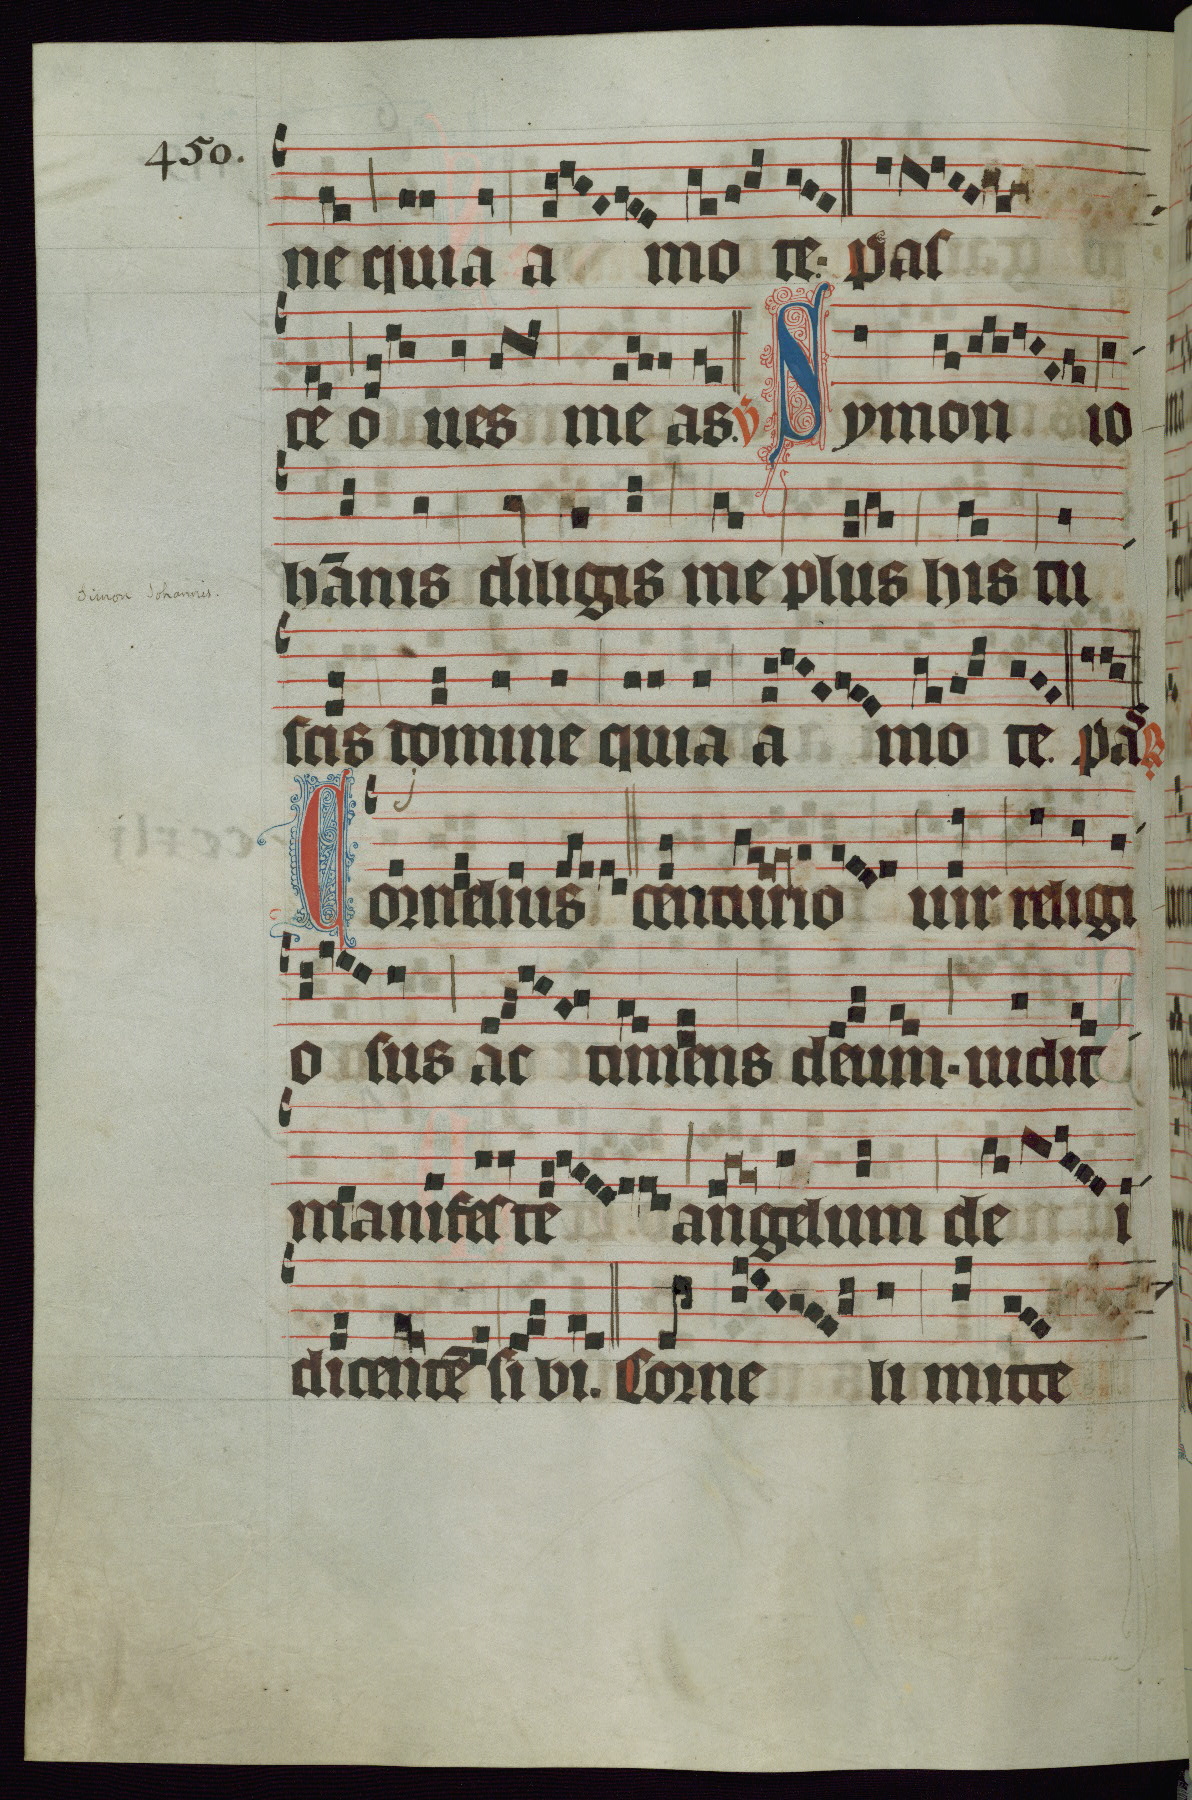 450.
ne quia a mo te: pas
ce o ues me as. ℣ Symon io
hānis diligis me plus his tu
Simon Johannis.
scis domine quia a mo te. pas ℟
j
Cornelius centurio uir religi
o sus ac timens deum. uidit
manifeste angelum de i
dicentē si bi. Corne li mitte